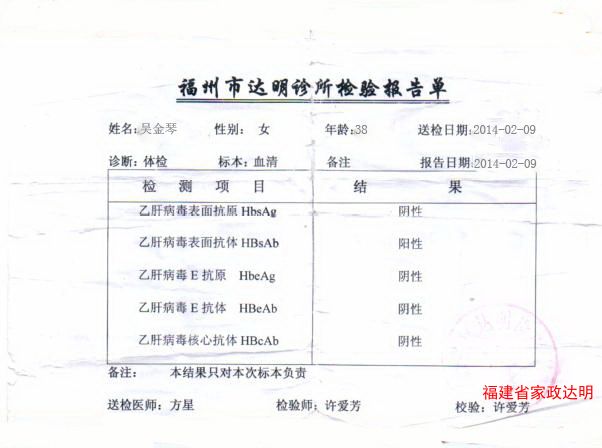 福州市达明诊所检验报告单
姓名:吴金琴 性别: 女 年龄:38 送检日期:2014-02-09
诊断: 体检 标本: 血清 备注 报告日期:2014-02-09
检 测 项 目 结 果
乙肝病毒表面抗原 HbsAg 阴性
乙肝病毒表面抗体 HBsAb 阳性
乙肝病毒 E 抗原 HbeAg 阴性
乙肝病毒 E 抗体 HBeAb 阴性
乙肝病毒核心抗体 HBcAb 阴性
备注: 本结果只对本次标本负责
福建省家政达明
送检医师: 方星 检验师: 许爱芳 校验: 许爱芳